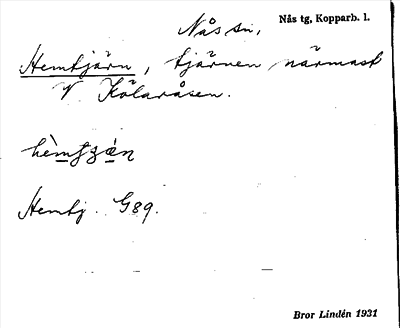 Nås sn,
Nås tg, Kopparb. l.
Hemtjärn, tjärnen närmast
V Kölaråsen.
Hemtj. G89.
Bror Lindén 1931